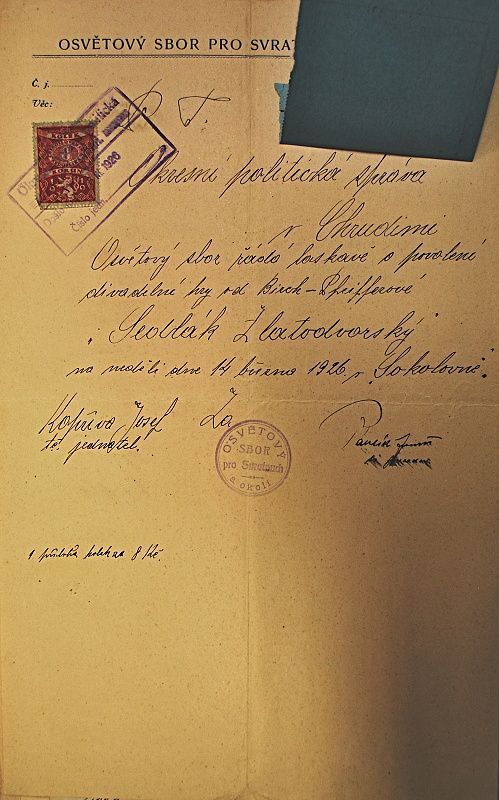 OSVĚTOVÝ SBOR PRO SVRAT
Č. j.
Věc:
P. T.
KOLEK
KORUN
1926
Číslo jedn.
Okresní politická správa
v Chrudimi
Osvětový sbor žádá laskavě o povolení
divadelné hry od Birch-Pfeifferové
"Sedlák Zlatodvorský"
na neděli dne 14 března 1926 v "Sokolovně".
Kopřiva Josef Za
t.č. jednatel.
OSVĚTOVÝ
SBOR
pro Svratouch
a okolí
1 příloha kolek na 8 Kč.